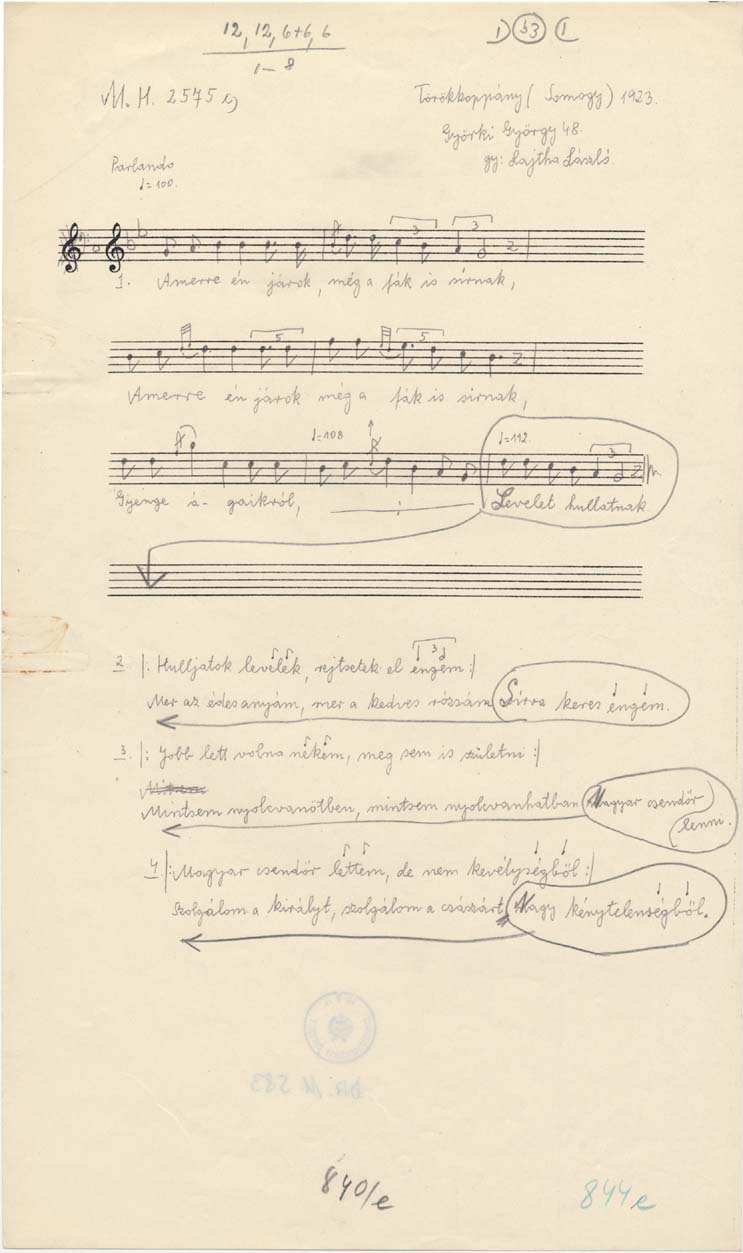 12, 12, 6+6, 6
1–8
M. H. 2575 c)
Törökkoppány (Somogy) 1923.
Györki György 48.
gy: Lajtha László.
Parlando
♩=100.
3 3
1. Amerre én járok, még a fák is sírnak,
5 5
Amerre én járok még a fák is sirnak,
♩=108 ♩=112. 3
Gyenge á- gaikról, Levelet hullatnak
2 |: Hulljatok levelék, rejtsetek el engem :|
Mer az édesanyám, mer a kedves rózsám Sírva keres engem.
3. |: Jobb lett volna nékem, meg sem is születni :|
Mintsem nyolcvanötben, mintsem nyolcvanhatban Magyar csendőr
lenni.
4 |: Magyar csendőr lettem, de nem kevélységből :|
Szolgálom a királyt, szolgálom a császárt Nagy kénytelenségből.
840/e
844e